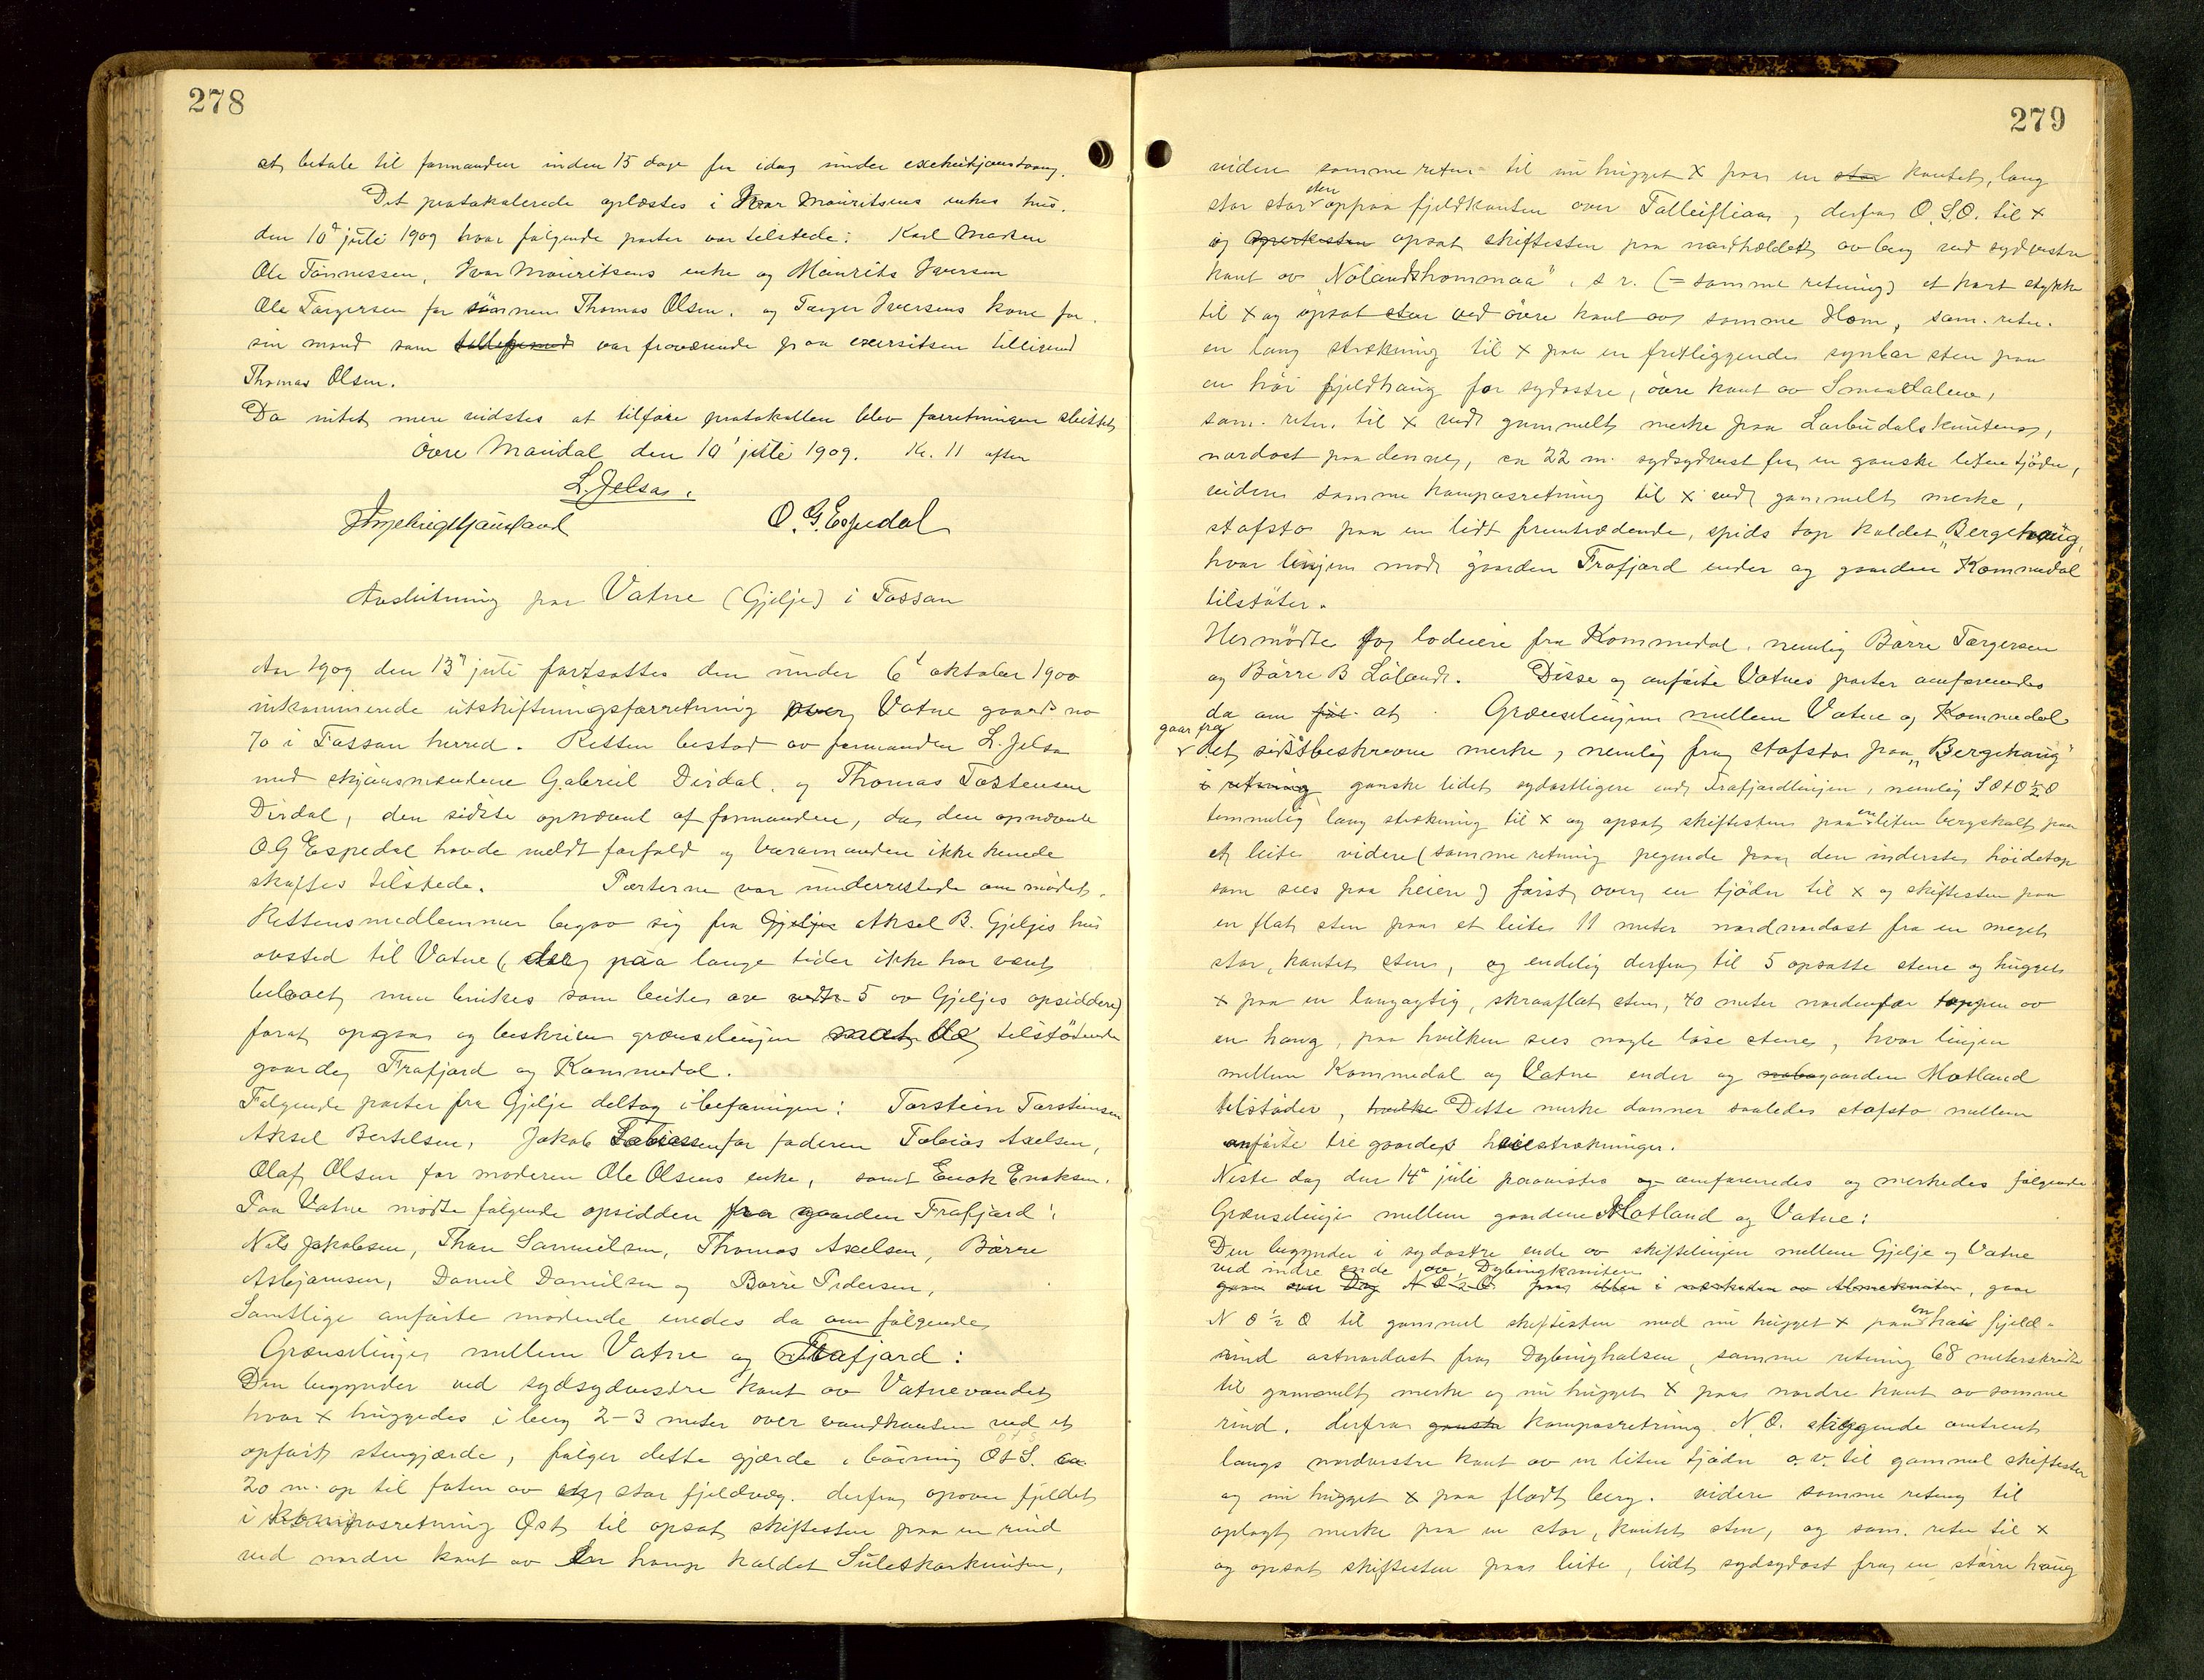 278
at betale til formanden inden 15 dage fra idag under exekutjonstvang.
Det protokolerede oplæstes i Ivar Mauritsens enkes hus.
den 10de juli 1909 hvor følgende parter var tilstede: Karl Madsen
Ole Tønnessen, Ivar Mauritsens enke og Maurits Iversen
Ole Torgersen for sønnen Thomas Olsen. og Torger Iversens kone for
sin mand som var fraværende paa exersitsen tilligemed
Thomas Olsen.
Da intet mere vidstes at tilføre protokollen blev forretningen sluttet
Øvre Maudal den 10' juli 1909. Kl. 11 aften
L. Jelsa.
O. G. Espedal
Avslutning paa Vatne (Gjelje) i Fossan
Aar 1909 den 13de juli fortsattes den under 6t oktober 1900
inkaminerede utskiftningsforretning over Vatne gaards no
70 i Fossan herred. Retten bestod av formanden L. Jelsa
med skjønsmændene Gabriel Dirdal, og Thomas Tostensen
Dirdal, den sidste opnævnt af formanden, da den opnævnte
O G Espedal havde meldt forfald og varamanden ikke kunde
skaffes tilstede. Parterne var underrettede om mødet.
Rettensmedlemmer begav sig fra Gjeljes Aksel B. Gjeljes hus
avsted til Vatne (der paa lange tider ikke har vært
beboet, men brukes som beite av vedk. 5 av Gjeljes opsiddere)
forat opgaa og beskrive grænselinjen mot de tilstødende
gaarde, Frafjord og Kommedal.
Følgende parter fra Gjelje deltog i befaringen: Torstein Torsteinsen
Aksel Bertelsen, Jakob Tobiassen for faderen Tobias Axelsen,
Olaf Olsen for moderen Ole Olsens enke, samt Enok Enoksen.
Paa Vatne mødte følgende opsidden fra gaarden Frafjord:
Nils Jakobsen, Thore Samuelsen, Thomas Axelsen, Børre
Asbjørnsen, Daniel Danielsen og Børre Pedersen,
Samtlige anførte mødende enedes da om følgende
Grænselinje mellem Vatne og Frafjord:
Den begynder ved sydsydvestre kant av Vatnevandet
hvor x huggedes i berg 2-3 meter over vandkanten ved et
opført stengjærde, følger dette gjærde i bøining OtS. ca
20 m. op til foten av en stor fjeldvæg. derfra opover fjeldet
i kompasretning Øst, til opsat skiftesten paa en rind
ved nordre kant av en haug kaldet Suleskarknuten,
279
videre samme retn. til nu hugget x paa en stor kantet, lang
stor stor sten oppaa fjeldkanten over Tolleifliaas, derfra O.S.O. til x
og opsat skiftesten paa nordhældet av berg ved sydvestre
kant av "Nolandshommaa", s r. (= samme retning) et kort stykke
til x og opsat sten ved øvre kant av samme Hom, sam. retn.
en lang strækning til x paa en fritliggende synbar sten paa
en høi fjeldhaug for sydøstre, øvre kant av Smaadalene,
sam. retn. til x ved gammelt merke paa Larbudalsknuten,
nordost paa denne, ca 22 m. sydsydvest fra en ganske liten tjødn,
videre samme kompasretning til x ved gammelt merke,
stafsto paa en lidt fremtrædende, spids top kaldet "Bergehaug,
hvor linjen mod gaarden Frafjord ender og gaarden Kommedal
tilstøter.
Her mødte for lodeiere fra Kommedal, nemlig Børre Torgersen
og Børre B Løland. Disse og anførte Vatnes parter omforenedes
da om at Grænselinjen mellem Vatne og Kommedal
gaar fra
det sidstbeskrevne merke, nemlig fra stafsto paa "Bergehaug"
i retning ganske lidet sydostligere end Frafjordlinjen, nemlig SOtO½O
temmelig lang strækning til x og opsat skiftesten paa en liten bergskolt paa
et leite videre (samme retning pegende paa den inderste høidetop
som sees paa heien) først over en tjødn til x og skiftesten paa
en flat sten paa et leite 11 meter nordnordost fra en meget
stor, kantet sten, og endelig derfra til 5 opsatte stene og hugget
x paa en langagtig, skraaflat sten, 40 meter nordenfor toppen av
en haug, paa hvilken sees nogle løse stene, hvor linjen
mellem Kommedal og Vatne ender og nabogaarden Motland
tilstøder, hvilke Dette merke danner saaledes stafsto mellem
anførte tre gaardes heiestrækninger.
Neste dag den 14de juli paavistes og omforenedes og merkedes følgende
Grænselinje mellem gaardene Motland og Vatne:
Den begynder i sydostre ende av skiftelinjen mellem Gjelje og Vatne
ved indre ende av, Dybingknuten
gaar over Dy N O ½ O paa i nærheden av, gaar
N O ½ O til gammel skiftesten med nu hugget x paa en høi fjeld-
rind ostnordost fra Dybinghalsen, samme retning 68 meterskridt
til gammelt merke og nu hugget x paa nordre kant av samme
rind. derfra ganske kompasretning N.O. skiggende omtrent
langs nordvestre kant av en liten tjødn o. v. til gammel skiftesten
og nu hugget x paa fladt berg. videre samme retning til
oplagt merke paa en stor, kantet sten, og sam. retn til x
og opsat skiftesten paa leite, lidt sydsydost fra en større haug